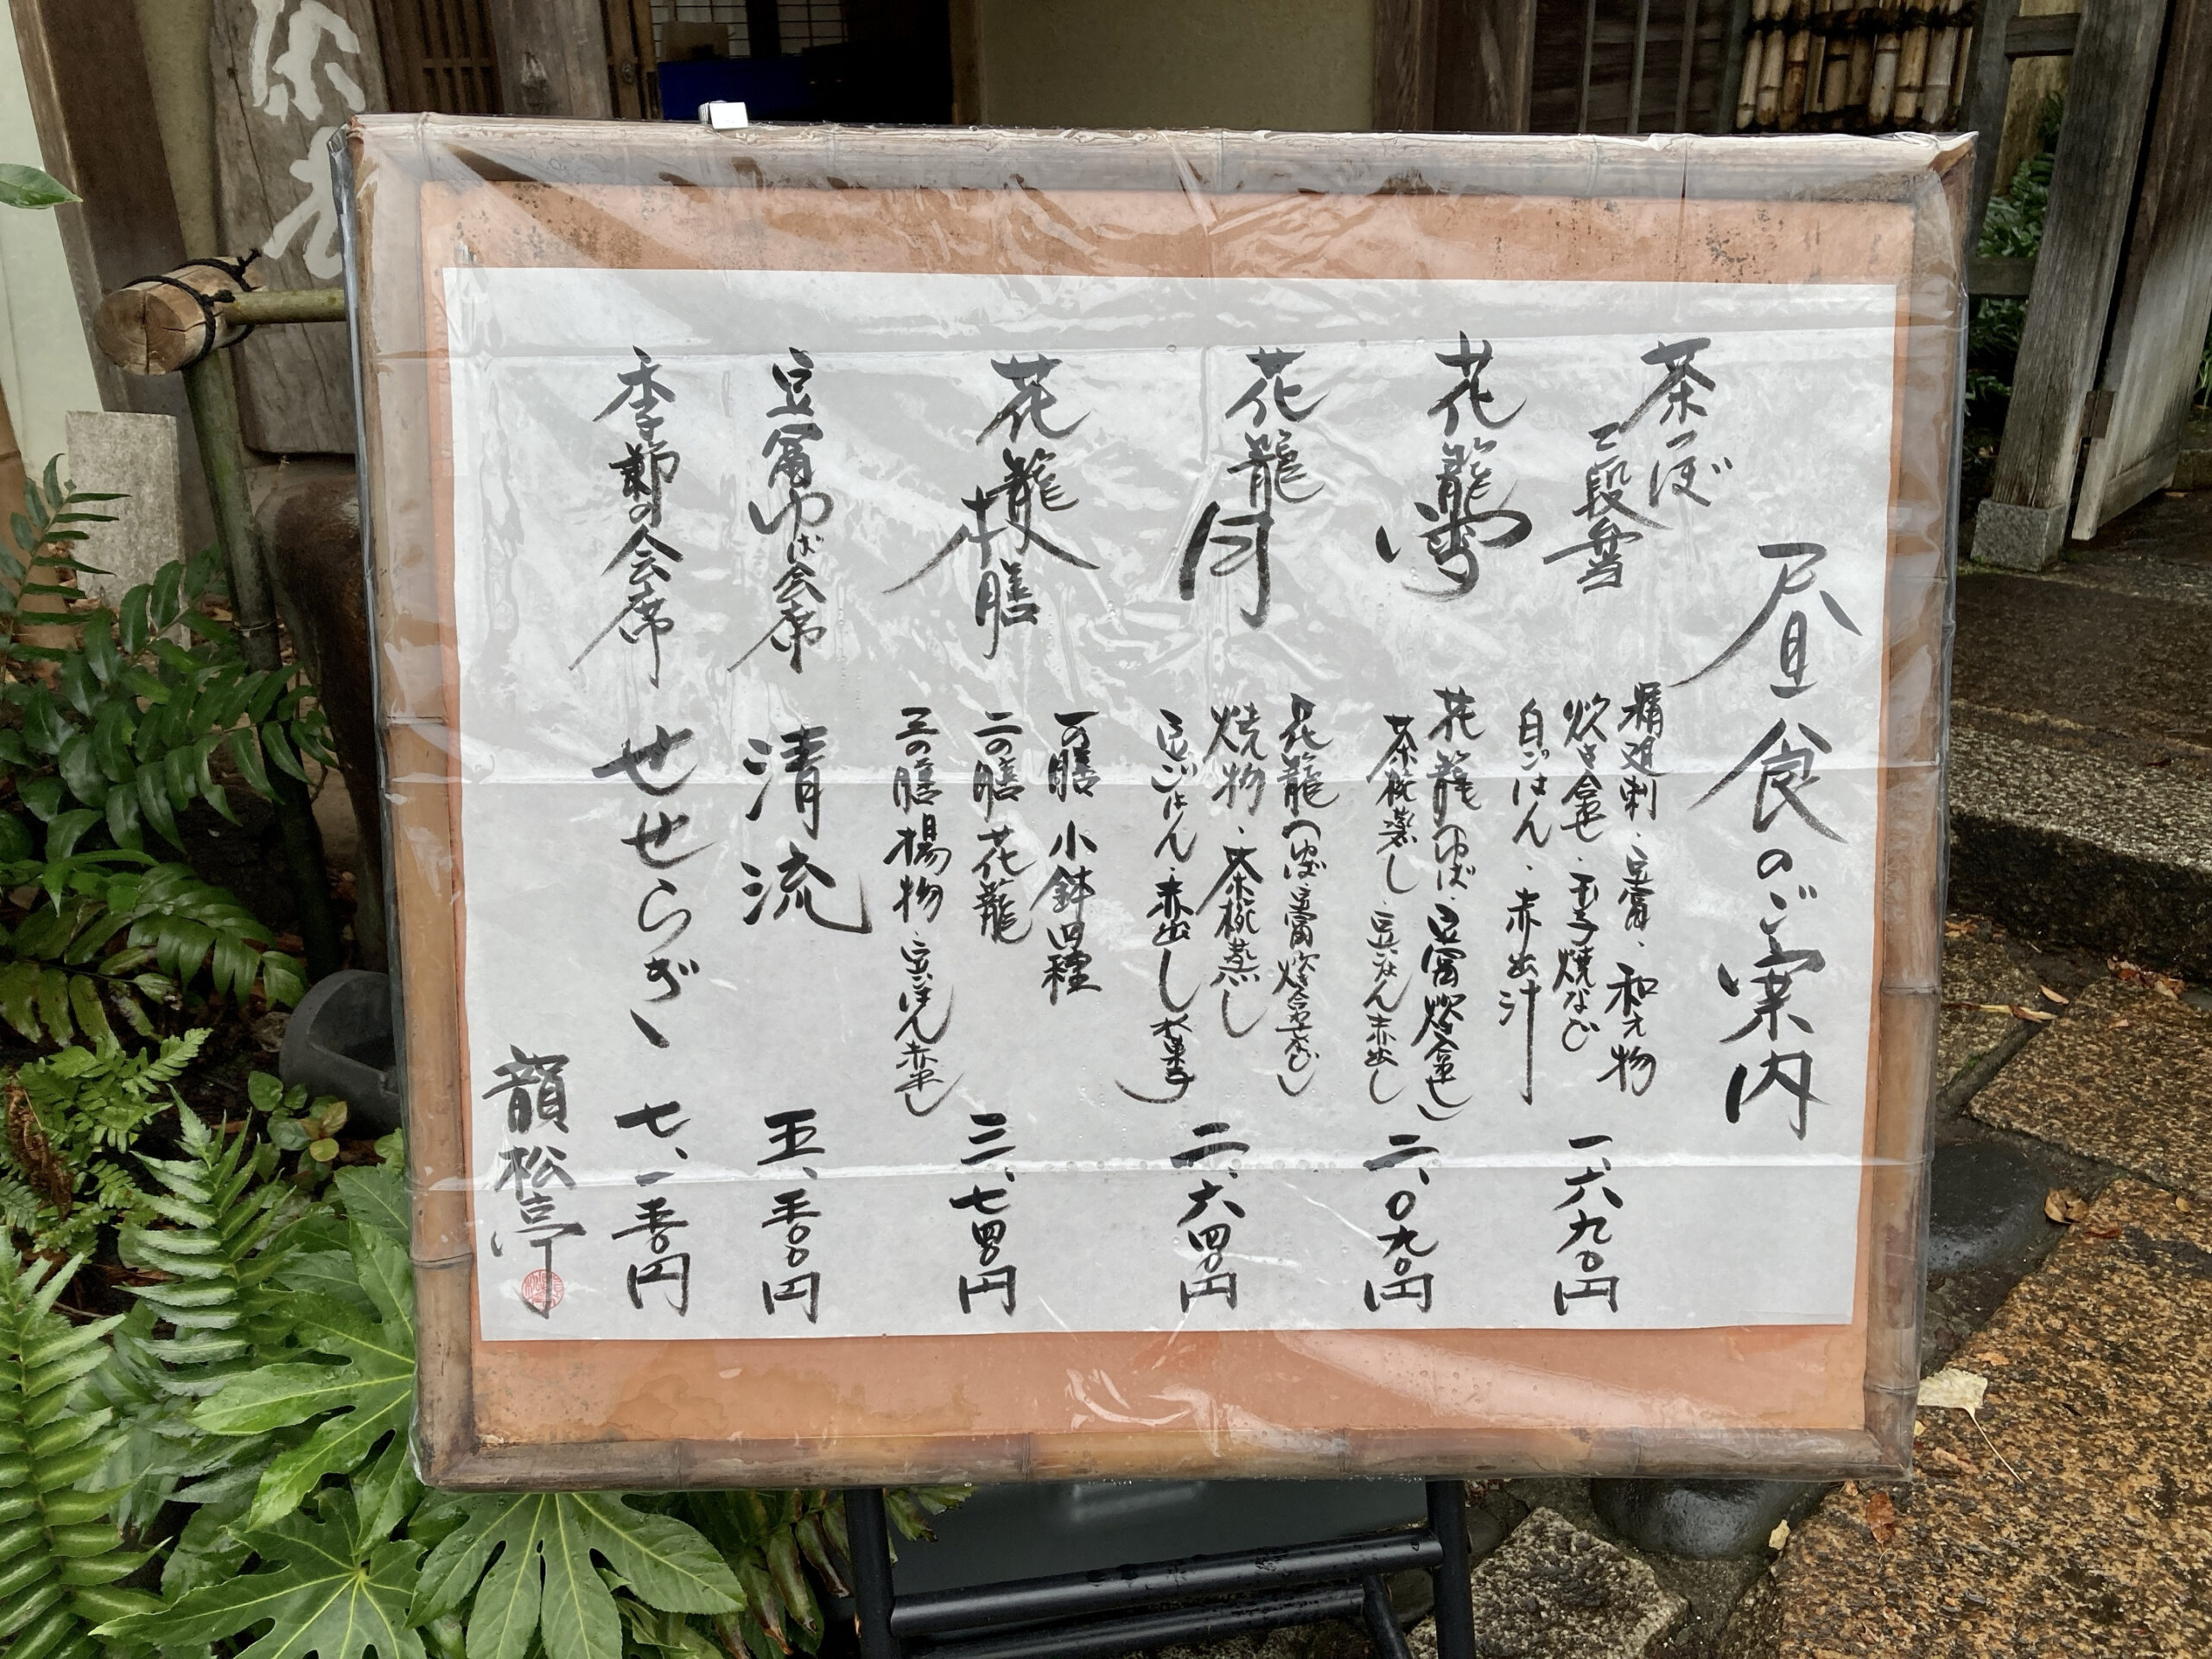 昼食のご案内
茶つぼ
三段弁当
精進刺・豆富・和え物
炊き合せ・玉子焼など
白ごはん・赤出汁
一、六九〇円
花籠 雪
花籠(ゆば・豆富・炊合せ)
茶椀蒸し 豆ごはん 赤出し
二、〇九〇円
花籠 月
花籠(ゆば・豆富・炊合せなど)
焼物・茶椀蒸し
豆ごはん・赤出し 水菓子
二、六四〇円
花籠 膳
一の膳 小鉢四種
二の膳 花籠
三の膳 揚物・豆ごはん 赤出し
三、七四〇円
豆富ゆば会席 清流
五、五〇〇円
季節の会席 せせらぎ
七、一五〇円
韻松亭